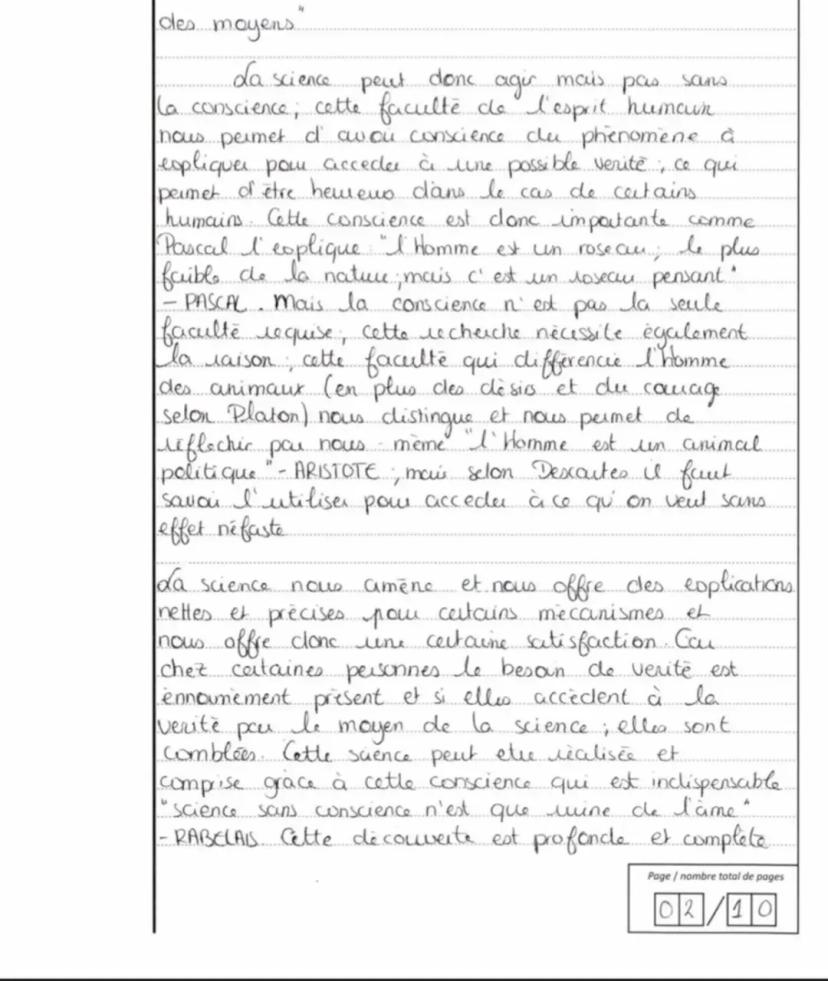 des moyens"
La science peut donc agir mais pas sans
la conscience ; cette faculté de l'esprit humain
nous permet d'avoir conscience du phénomène à
expliquer pour acceder à une possible verité ; ce qui
permet d'être heureux dans le cas de certains
humains. Cette conscience est donc importante comme
Pascal l'explique "l'Homme est un roseau ; le plus
faible de la nature ; mais c'est un roseau pensant"
- PASCAL. Mais la conscience n'est pas la seule
faculté requise ; cette recherche nécessite également
la raison ; cette faculté qui différencie l'Homme
des animaux (en plus des désirs et du courage
selon Platon) nous distingue et nous permet de
réflechir par nous-même "l'Homme est un animal
politique" - ARISTOTE ; mais selon Descartes il faut
savoir l'utiliser pour acceder à ce qu'on veut sans
effet néfaste
La science nous amène et nous offre des explications
nettes et précises pour certains mécanismes et
nous offre donc une certaine satisfaction. Car
chez certaines personnes le besoin de verité est
énormément présent et si elles accèdent à la
verité par le moyen de la science ; elles sont
comblées. Cette science peut etre réalisée et
comprise grace à cette conscience qui est indispensable
"science sans conscience n'est que ruine de l'âme"
- RABELAIS. Cette découverte est profonde et complète
Page / nombre total de pages
02/10